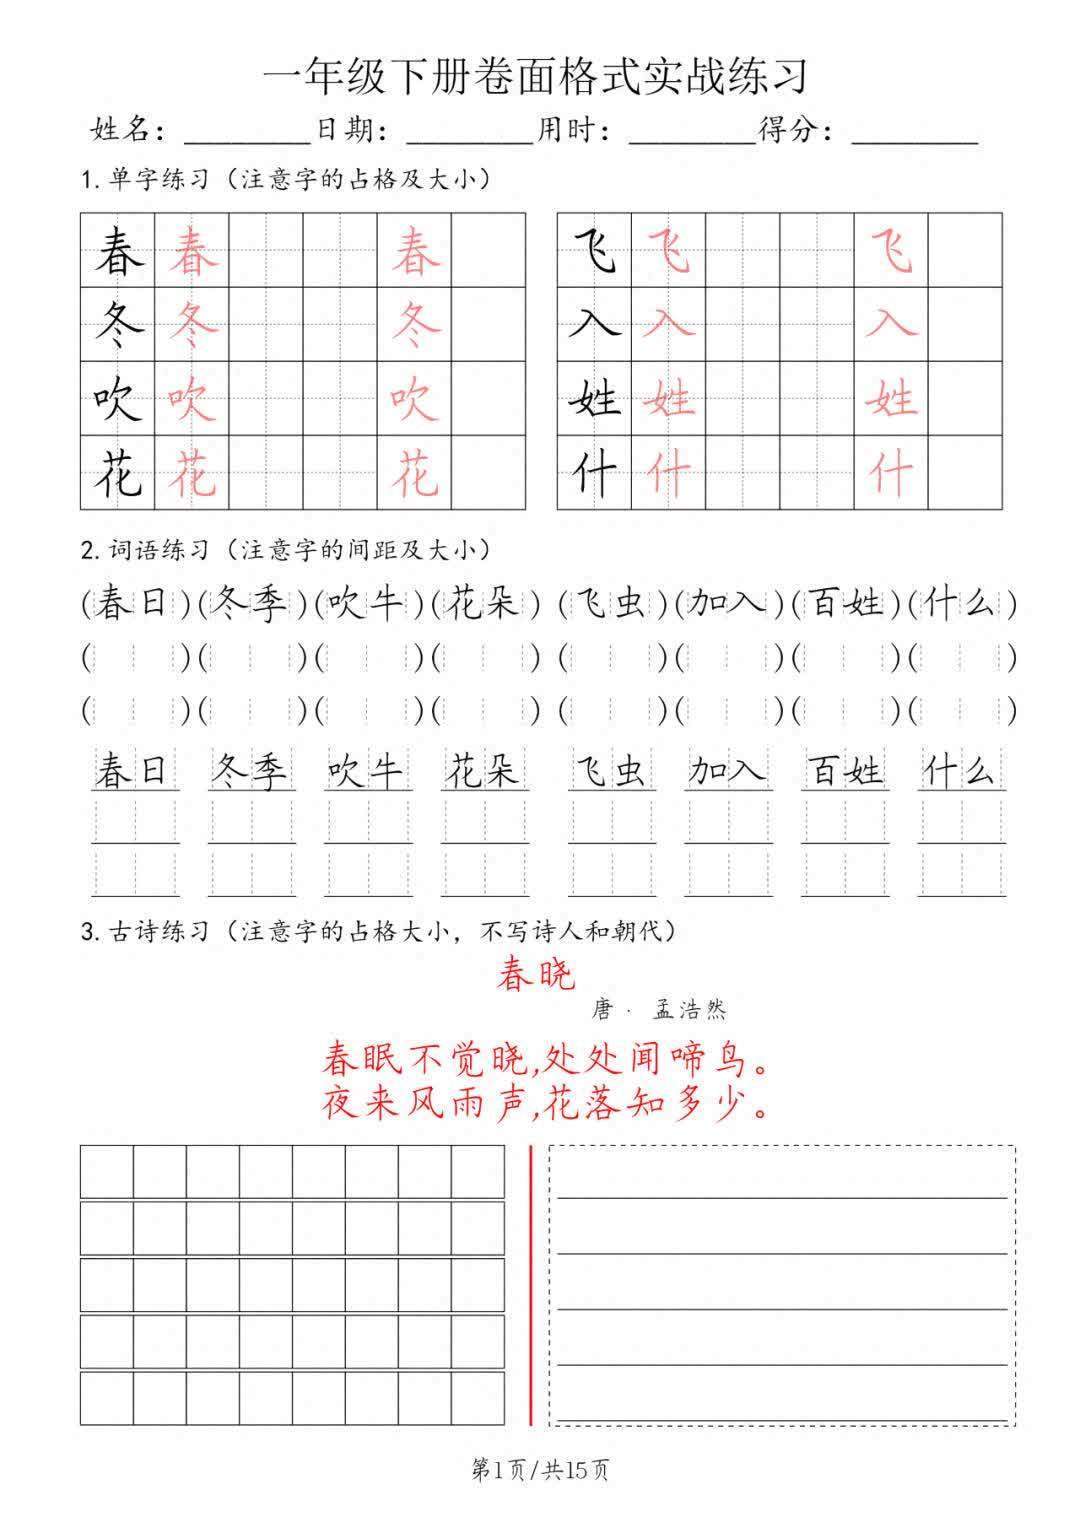 一年级下册卷面格式实战练习
姓名：________日期：________用时：________得分：________
1.单字练习（注意字的占格及大小）
春 春 春 飞 飞 飞
冬 冬 冬 入 入 入
吹 吹 吹 姓 姓 姓
花 花 花 什 什 什
2.词语练习（注意字的间距及大小）
(春日)(冬季)(吹牛)(花朵) (飞虫)(加入)(百姓)(什么)
( )( )( )( ) ( )( )( )( )
( )( )( )( ) ( )( )( )( )
春日 冬季 吹牛 花朵 飞虫 加入 百姓 什么
3.古诗练习（注意字的占格大小，不写诗人和朝代）
春晓
唐· 孟浩然
春眠不觉晓,处处闻啼鸟。
夜来风雨声,花落知多少。
第1页/共15页